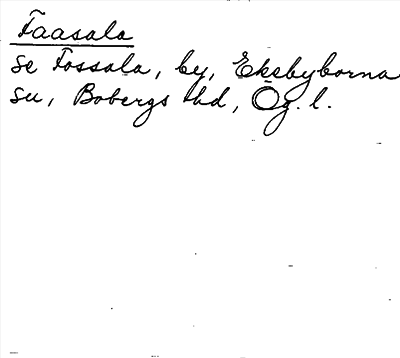 Faasala
se Fossala, by, Eksbyborna
su, Bobergs hd, Ög. l.